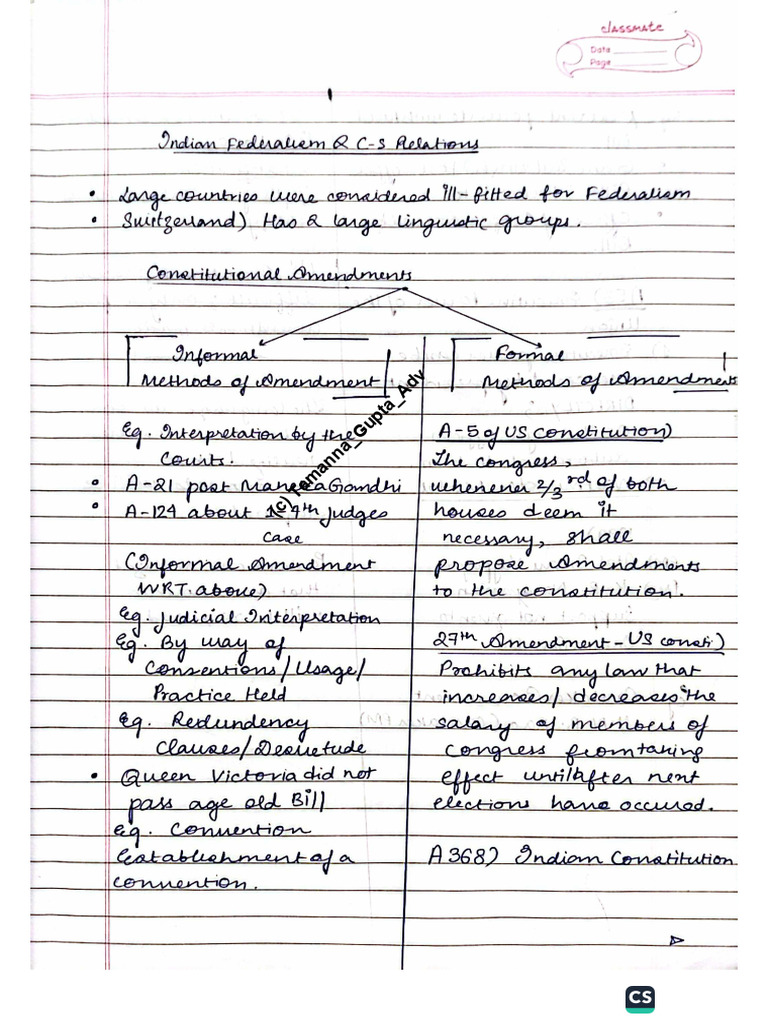 classmate
Date
Page
Indian Federalism & C-S Relations
• Large countries were considered ill-fitted for Federalism
• Switzerland) Has 2 large linguistic groups.
Constitutional Amendments
Informal
Methods of Amendment
Eg. Interpretation by the
Courts.
• A-21 post Maneka Gandhi
• A-124 about 1-4th Judges
Case
(Informal Amendment
WRT. above)
Eg. Judicial Interpretation
Eg. By way of
Conventions/Usage/
Practice Held
Eg. Redundency
Clauses/Desuetude
• Queen Victoria did not
pass age old Bill
Eg. Convention
Establishment of a
convention.
Formal
Methods of Amendments
A-5 of US constitution)
The congress,
whenever 2/3rd of both
houses deem it
necessary, shall
propose Amendments
to the constitution.
27th Amendment - US consti)
Prohibits any law that
increases/decreases the
salary of members of
Congress from taking
effect until after next
elections have occured.
A 368) Indian Constitution
(c) Tamanna_Gupta_Adv
CS